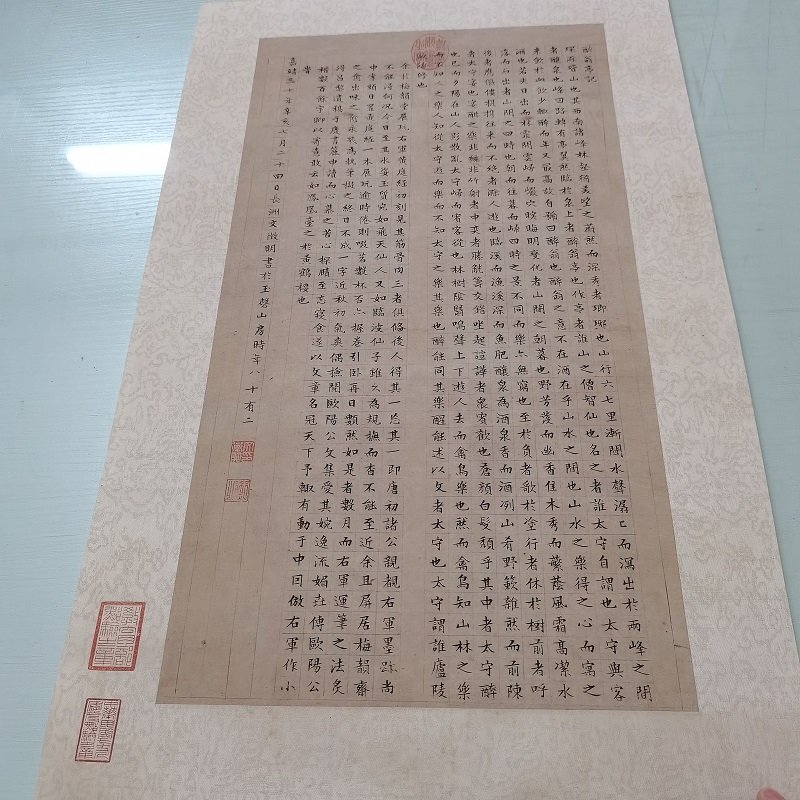 醉翁亭記
環滁皆山也其西南諸峰林壑猶美望之蔚然而深秀者瑯琊也山行六七里漸聞水聲潺〻而瀉出於兩峰之間
者釀泉也峰回路轉有亭翼然臨於泉上者醉翁亭也作亭者誰山之僧智仙也名之者誰太守自謂也太守與客
來飲於此飲少輒醉而年又最高故自號曰醉翁也醉翁之意不在酒在乎山水之間也山水之樂得之心而寓之
酒也若夫日出而林霏開雲歸而巖穴暝晦明變化者山間之朝暮也野芳發而幽香佳木秀而繁蔭風霜高潔水
落而石出者山間之四時也朝而往暮而歸四時之景不同而樂亦無窮也至於負者歌於塗行者休於樹前者呼
後者應傴僂提攜往來而不絕者滁人遊也臨溪而漁溪深而魚肥釀泉為酒泉香而酒冽山肴野蔌雜然而前陳
者太守宴也宴酣之樂非絲非竹射者中奕者勝觥籌交錯坐起諠譁者衆賓歡也蒼顏白髮頹乎其中者太守醉
也已而夕陽在山人影散亂太守歸而賓客從也林樹陰翳鳴聲上下遊人去而禽鳥樂也然而禽鳥知山林之樂
而不知人之樂人知從太守遊而樂而不知太守之樂其樂也醉能同其樂醒能述以文者太守也太守謂誰廬陵
歐陽修也
余於梅韻堂展玩右軍黃庭經初刻見其筋骨肉三者俱備後人得其一忘其一即唐初諸公親覩右軍墨跡尚
不能得何況今日至其水姿玉質宛如飛天仙人又如臨波仙子雖久為規橅而杳不能至近余且屏居梅韻齋
中案頭日置黃庭經一本展玩逾時倦則啜茗數杯否亦握卷引臥再日數然如是者數月而右軍運筆之法炙
之愈出味之愈永執筆掇之終日不成一字近秋初氣爽偶撿閱歐陽公文集愛其婉逸流媚傳歐陽公
得昌黎遺稿于廢書簏中讀而心慕之苦心探賾至忘寢食遂以文章名冠天下予輒有動于中因倣右軍作小
楷數百餘字聊以寄意敢云如鳳凰臺之於黃鶴樓也
嘉靖三十年辛亥七月二十四日長洲文徵明書於玉磬山房時年八十有二